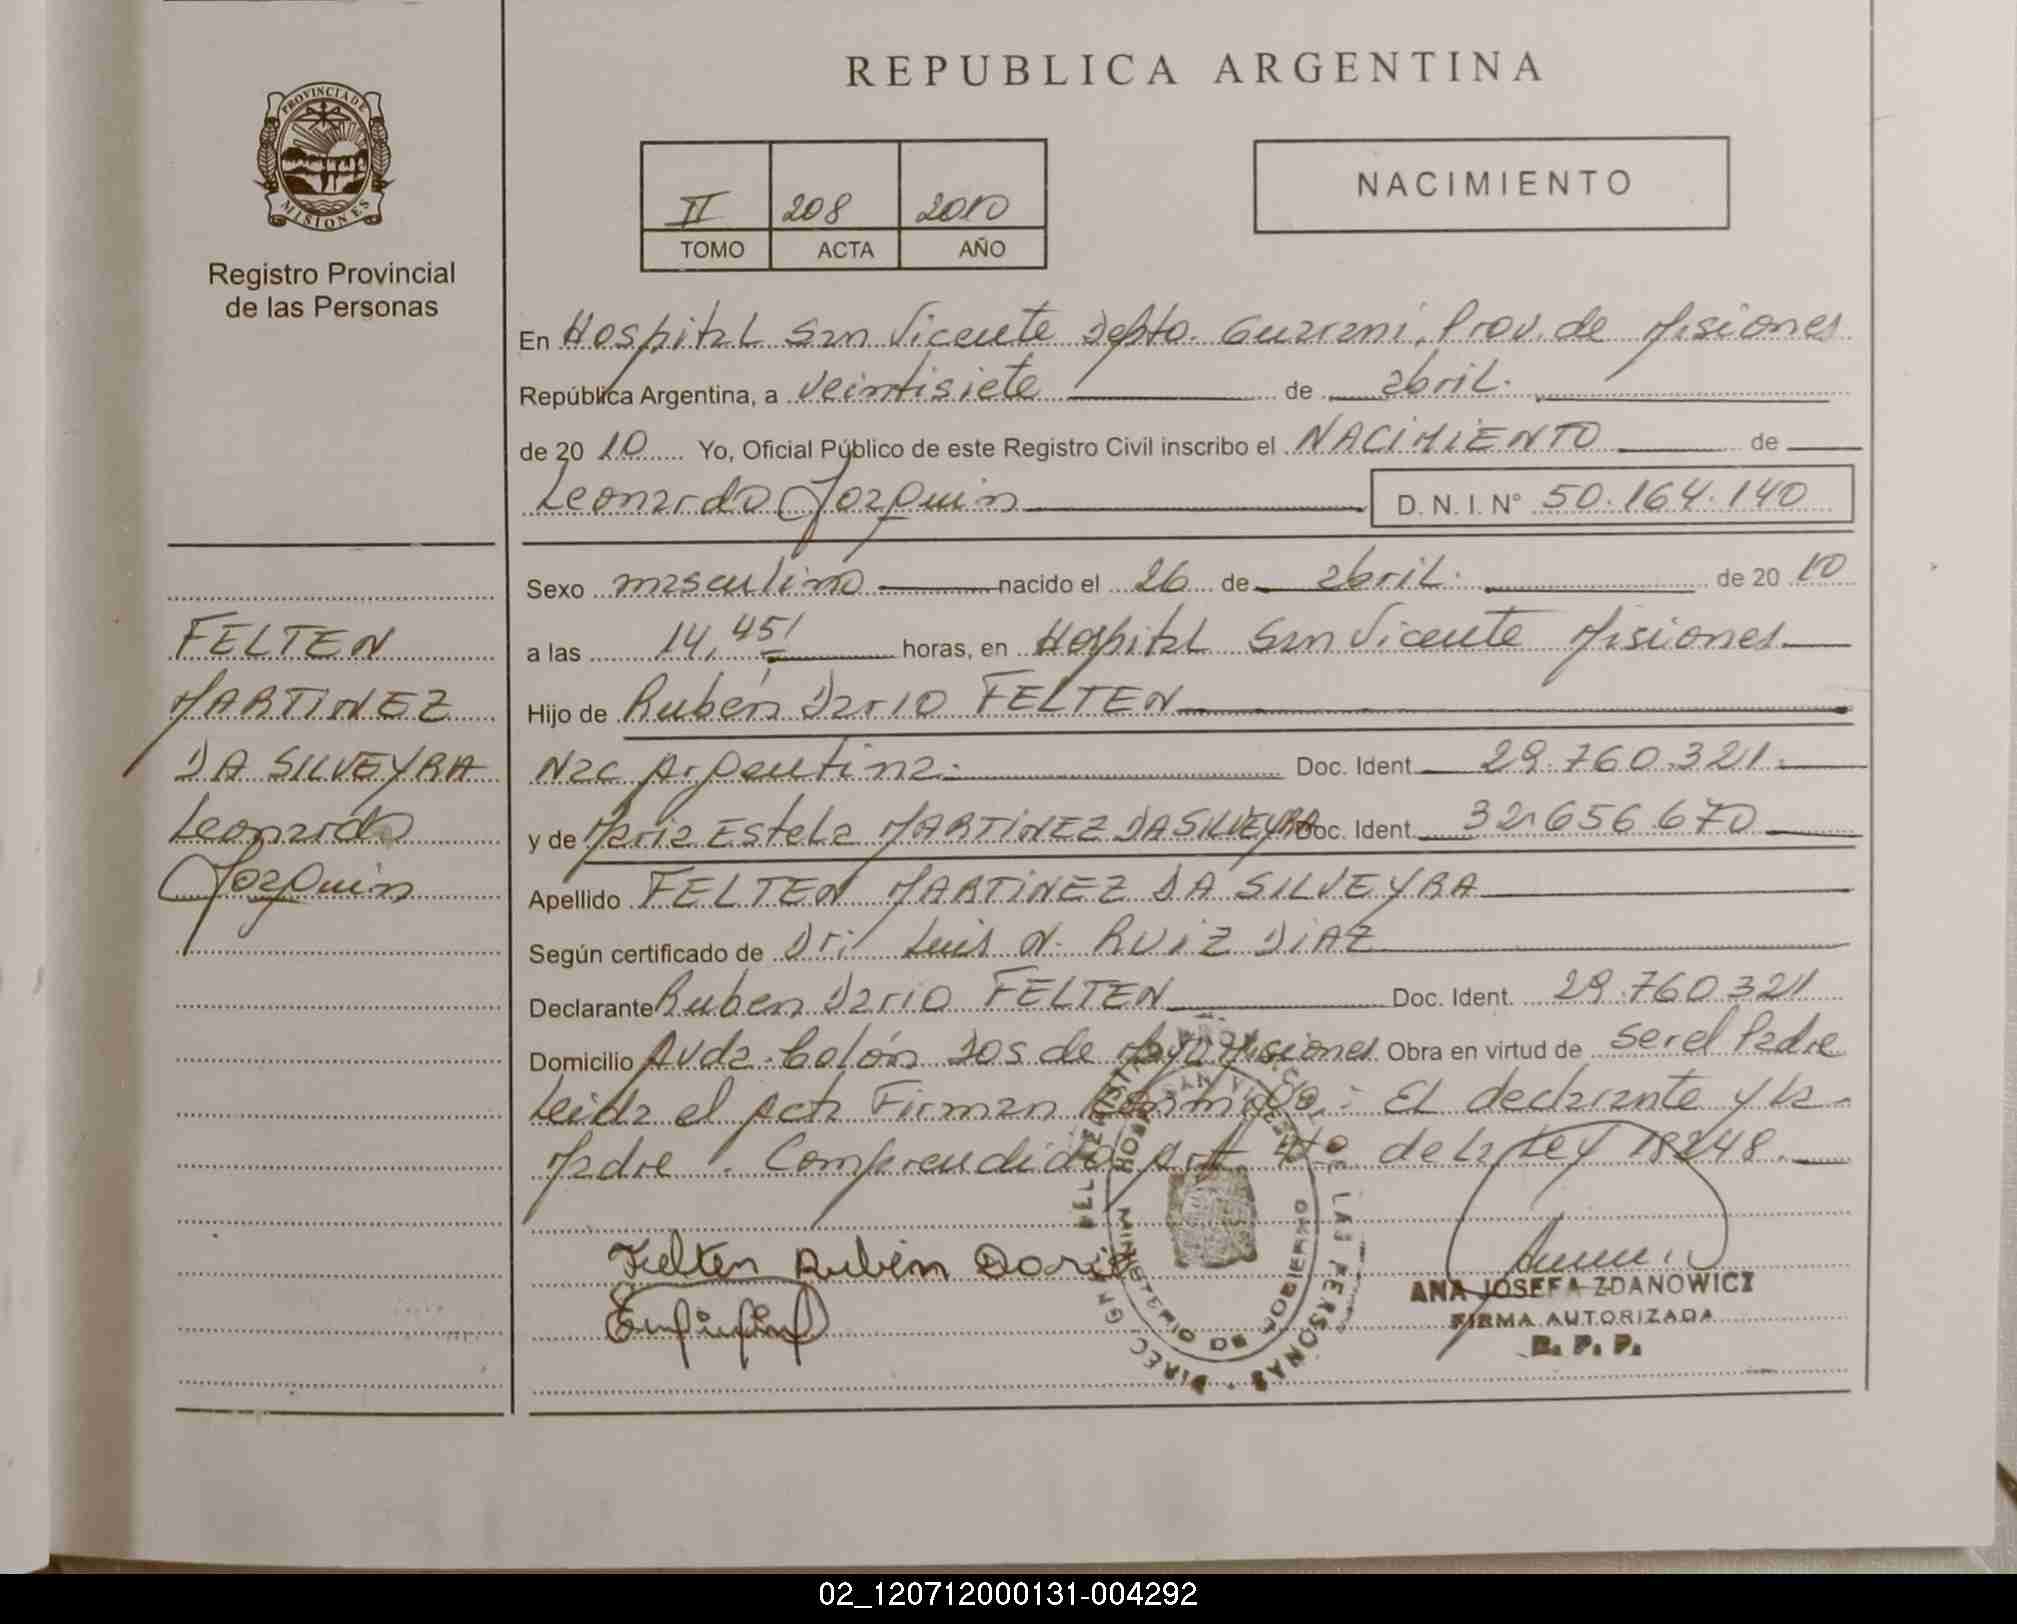 REPUBLICA ARGENTINA
PROVINCIA DE
MISIONES
Registro Provincial
de las Personas
II 208 2010
TOMO ACTA AÑO
NACIMIENTO
FELTEN
MARTINEZ
DA SILVEYRA
Leonardo
Joaquin
En Hospital San Vicente Depto. Guarani, Prov. de Misiones
República Argentina, a veintisiete de abril.
de 20 10 Yo, Oficial Público de este Registro Civil inscribo el NACIMIENTO de
Leonardo Joaquin D.N.I. N° 50.164.140
Sexo masculino nacido el 26 de abril. de 20 10
a las 14,45' horas, en Hospital San Vicente Misiones
Hijo de Rubén Dario FELTEN
Nac Argentina. Doc. Ident 29.760.321.
y de Maria Estela MARTINEZ DA SILVEYRA Doc. Ident 32.656.670
Apellido FELTEN MARTINEZ DA SILVEYRA
Según certificado de Dr. Luis N. RUIZ DIAZ
Declarante Ruben Dario FELTEN Doc. Ident. 29.760.321
Domicilio Avda. Colón Dos de Mayo Misiones Obra en virtud de ser el Padre
Leida el acta Firman conmigo: El declarante y la
Madre. Comprendido art. 4to de la Ley 18248.
Felten Rubén Dario
ANA JOSEFA ZDANOWICZ
FIRMA AUTORIZADA
R. P. P.
DE LAS PERSONAS
02_120712000131-004292